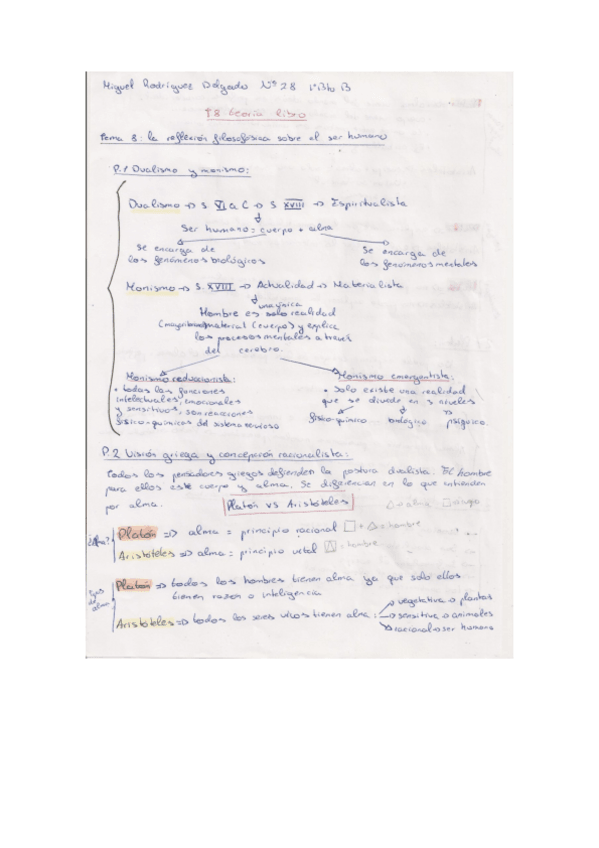 Miguel Rodríguez Delgado Nº 28 1º Bto B
T8 teoría libro
Tema 8: la reflexión filosofósica sobre el ser humano
P.1 Dualismo y monismo:
Dualismo → S VI a C → S XVIII → Espiritualista
Ser humano = cuerpo + alma
Se encarga de los fenómenos biológicos
Se encarga de los fenómenos mentales
Monismo → S. XVIII → Actualidad → Materialista
Hombre es solo realidad única
material (cuerpo) y explica
los procesos mentales a través
del cerebro.
Monismo reduccionista:
• todas las funciones
intelectuales, emocionales
y sensitivas, son reacciones
físico-químicas del sistema nervioso
Monismo emergentista:
• Solo existe una realidad
que se divide en 3 niveles
físico-químico biológico psíquico.
P.2 Visión griega y concepción racionalista:
todos los pensadores griegos defienden la postura dualista. El hombre
para ellos este cuerpo y alma. Se diferencian en lo que entienden
por alma.
Platón vs Aristóteles
△ = alma
¿Alma?
Platón => alma = principio racional □ + △ = hombre
Aristóteles => alma = principio vital = hombre
Platón => todos los hombres tienen alma ya que solo ellos
tienen razón o inteligencia
Aristóteles => todos los seres vivos tienen alma:
vegetativa → plantas
sensitiva → animales
racional → ser humano